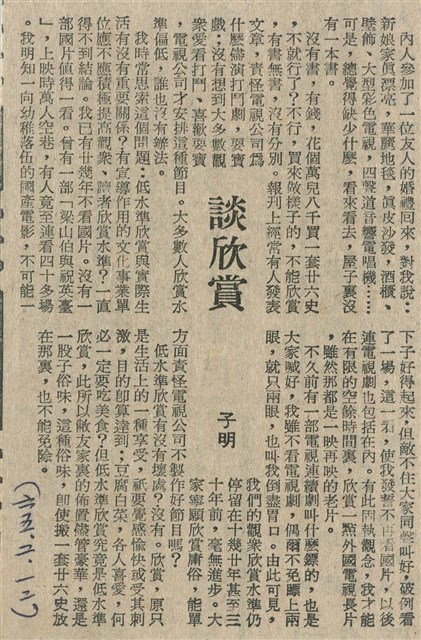 談欣賞
子明
內人參加了一位友人的婚禮回來,對我說:
新娘家眞漂亮,華麗地毯,眞皮沙發,酒櫃、
壁飾、大型彩色電視,四聲道音響電唱機……
可是,總覺得缺少什麼,看來看去,屋子裏沒
有一本書。
沒有書,有錢,花個萬兒八千買一套廿六史
,不就行了?不行,買來做樣子的,不能欣賞
,有書無書,沒有分別。報刊上經常有人發表
文章,責怪電視公司爲
什麼儘演打鬥劇,耍寶
戲;沒有想到大多數觀
衆愛看打鬥、喜歡耍寶
,電視公司才安排這種節目。大多數人欣賞水
準偏低,誰也沒有辦法。
我時常思索這個問題:低水準欣賞與實際生
活有沒有重要關係?有宣導作用的文化事業單
位應不應積極提高觀衆、讀者欣賞水準?一直
得不到結論。我已有廿幾年不看國片。沒有一
部國片值得一看。曾有一部「梁山伯與祝英臺
」,上映時萬人空巷,有人竟至連看四十多場
。我明知一向幼稚落伍的國產電影,不可能一
下子好得起來,但敵不住大家同聲叫好,破例看
了一場,這一看,使我發誓不再看國片,以後
連電視劇也包括在內。有此固執觀念,我才能
在有限的空餘時間裏,欣賞一點外國電視長片
,雖然那都是一映再映的老片。
不久前有一部電視連續劇叫什麼鏢的,也是
大家喊好,我雖不看電視劇,偶爾不免瞟上兩
眼,就只兩眼,也叫我倒盡胃口。由此可見,
我們的觀衆欣賞水準仍
停留在十幾廿年甚至三
十年前,毫無進步。大
家寧願欣賞庸俗,能單
方面責怪電視公司不製作好節目嗎?
低水準欣賞有沒有壞處?沒有。欣賞,原只
是生活上的一種享受,祇要覺感愉快或受其刺
激,目的卽算達到;豆腐白菜,各人喜愛,何
必一定要吃美食?但低水準欣賞究竟是低水準
欣賞,此所以敝友家裏的佈置儘管豪華,還是
一股子俗味,這種俗味,卽使搬一套廿六史放
在那裏,也不能免除。
(六五、二、一三)